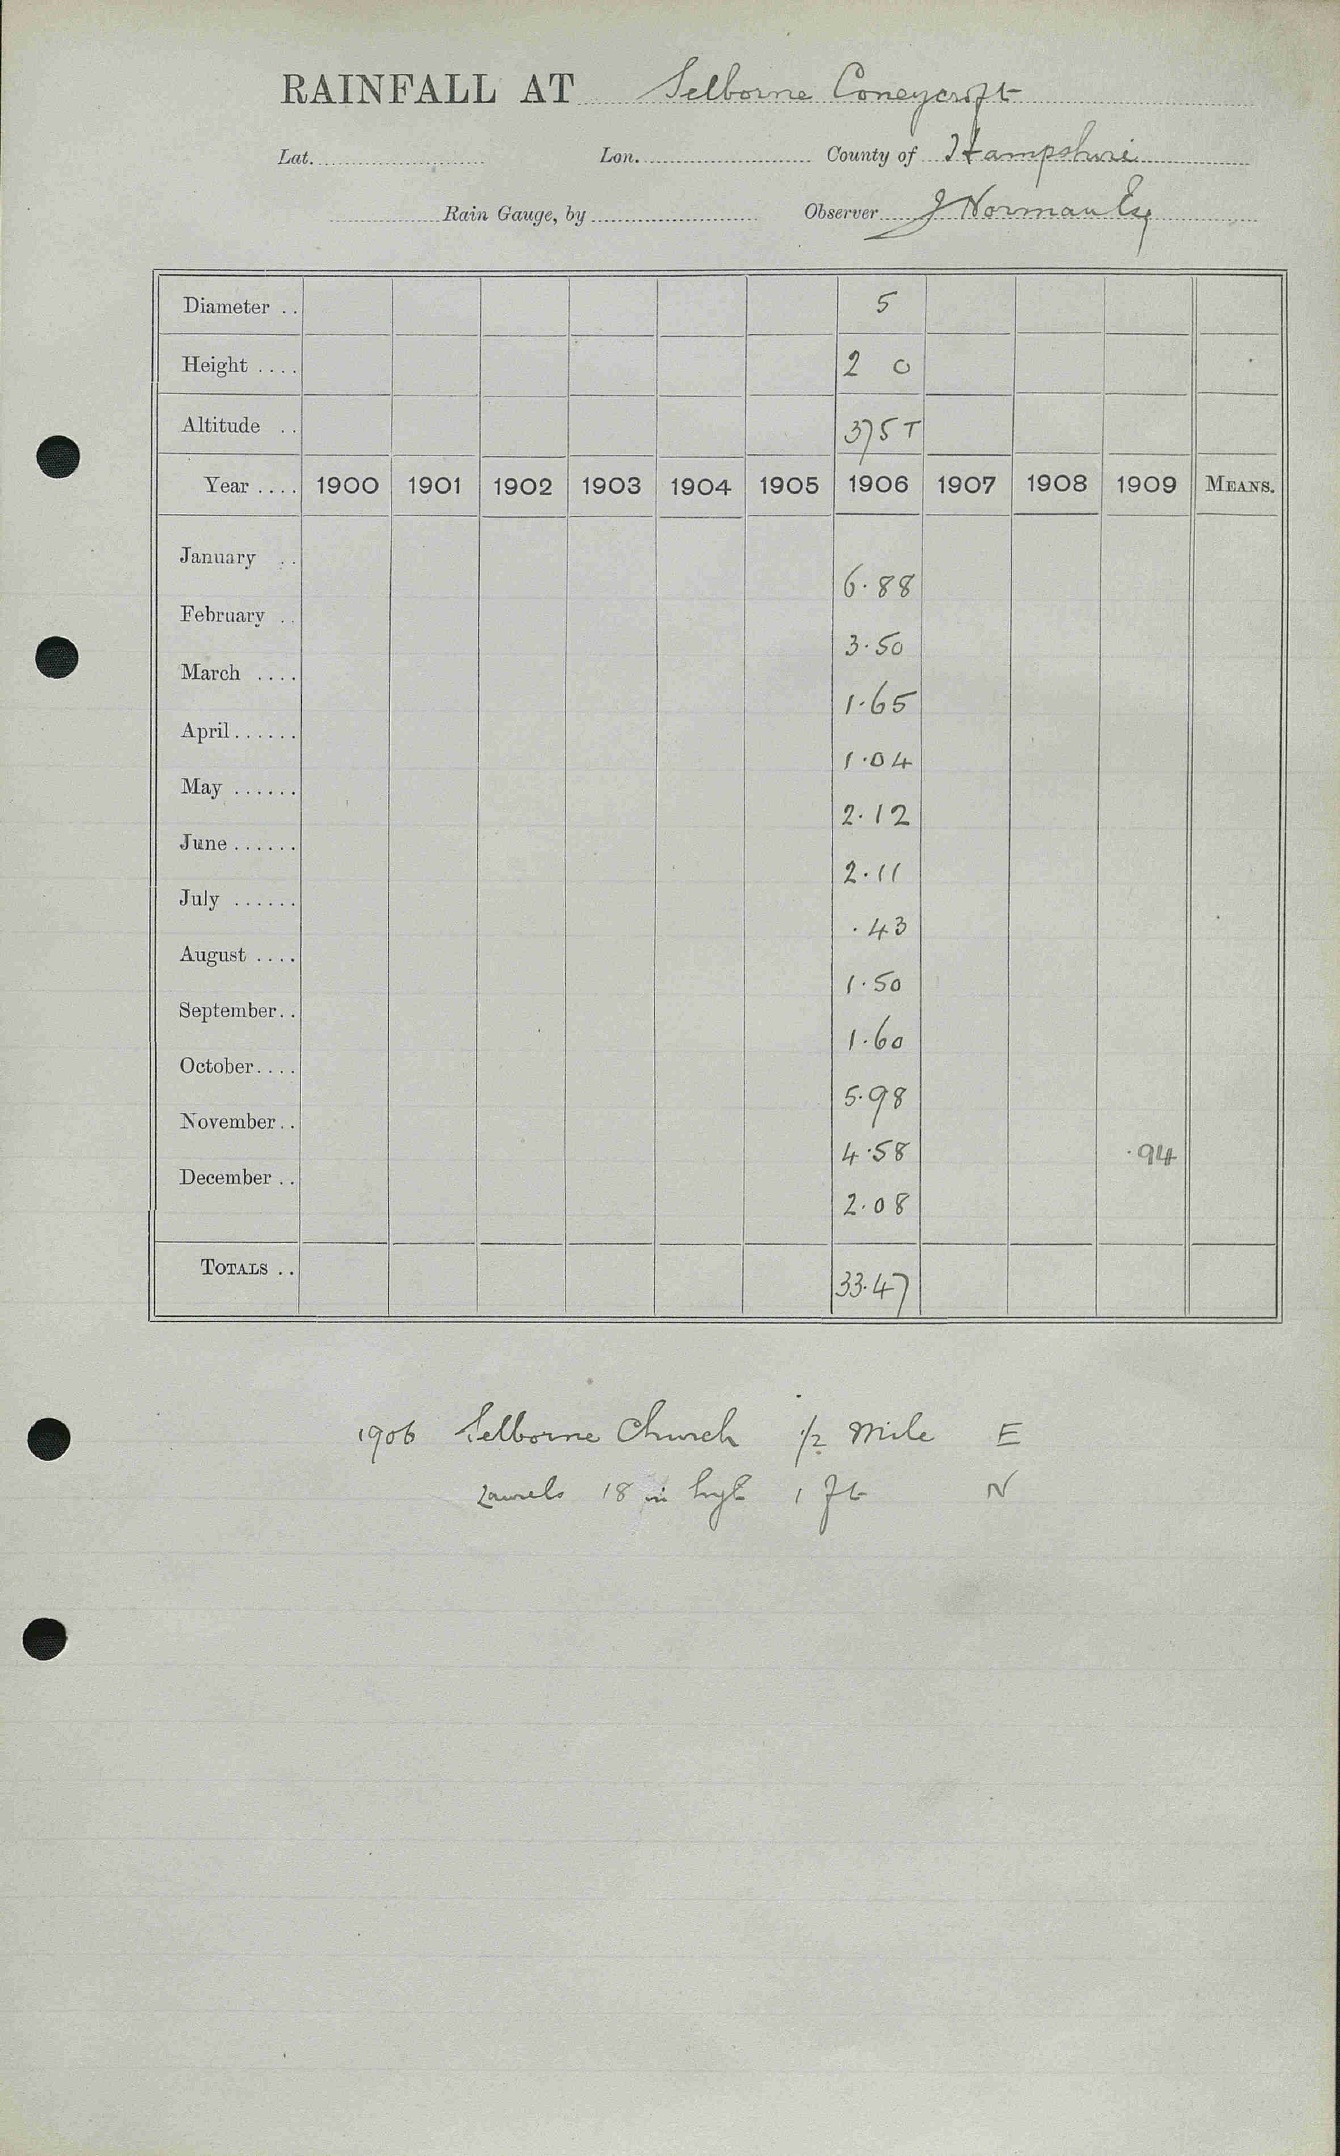 RAINFALL AT Selborne Coneycroft
Lat. Lon. County of Hampshire
Rain Gauge, by Observer J Norman Esq
Diameter .. 5
Height .... 2 0
Altitude .. 375 T
Year .... 1900 1901 1902 1903 1904 1905 1906 1907 1908 1909 MEANS.
January .. 6.88
February .. 3.50
March .... 1.65
April ...... 1.04
May ...... 2.12
June ...... 2.11
July ...... .43
August .... 1.50
September .. 1.60
October .... 5.98
November .. 4.58 .94
December .. 2.08
TOTALS .. 33.47
1906 Selborne Church 1/2 mile E
Laurels 18 in hgt 1 ft N